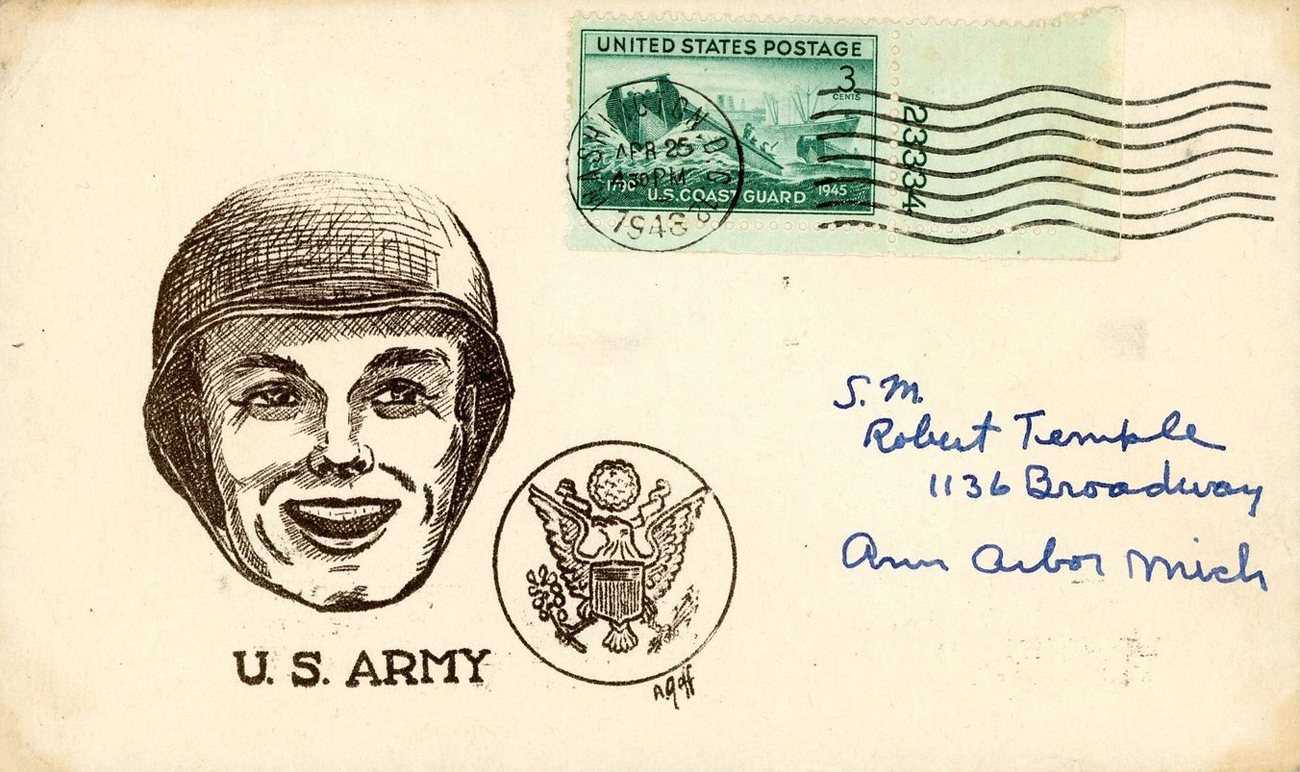 UNITED STATES POSTAGE
3
CENTS
WASHINGTON D.C.
APR 25
4 30 PM
1948
1790
U.S. COAST GUARD
1945
23334
S. M.
Robert Temple
1136 Broadway
Ann Arbor Mich
U. S. ARMY